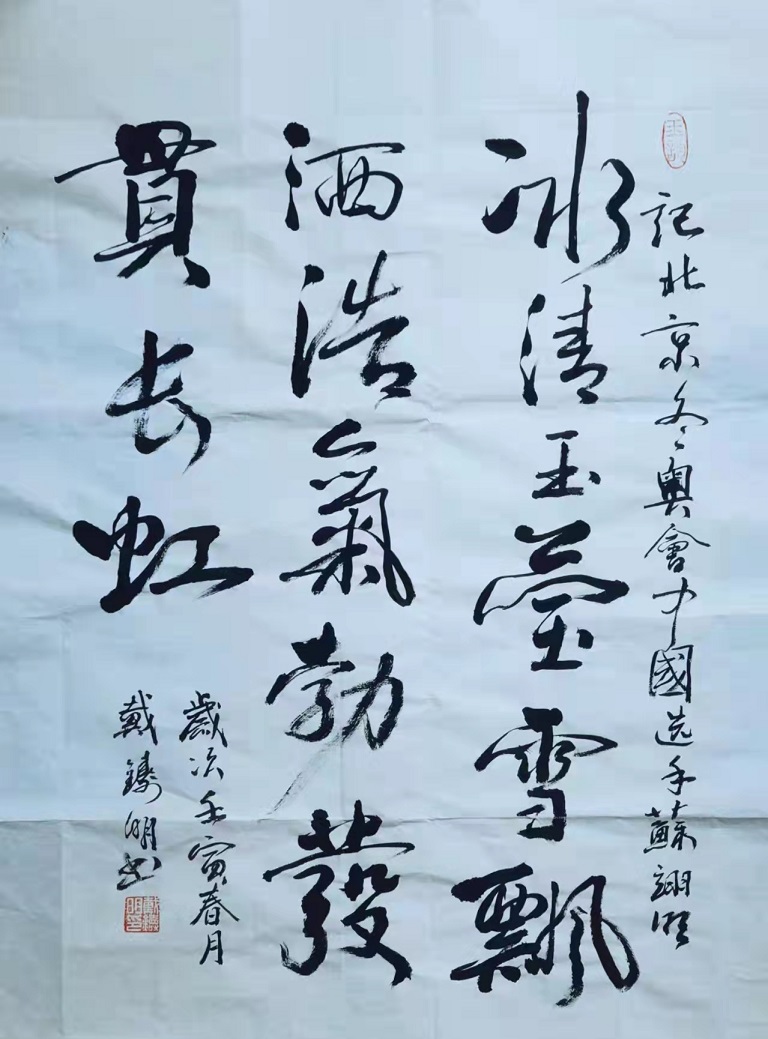 記北京冬奧會中國选手蘇翊鸣
冰清玉莹雪飄
洒浩氣勃發
貫長虹
歲次壬寅春月
戴鑄明书